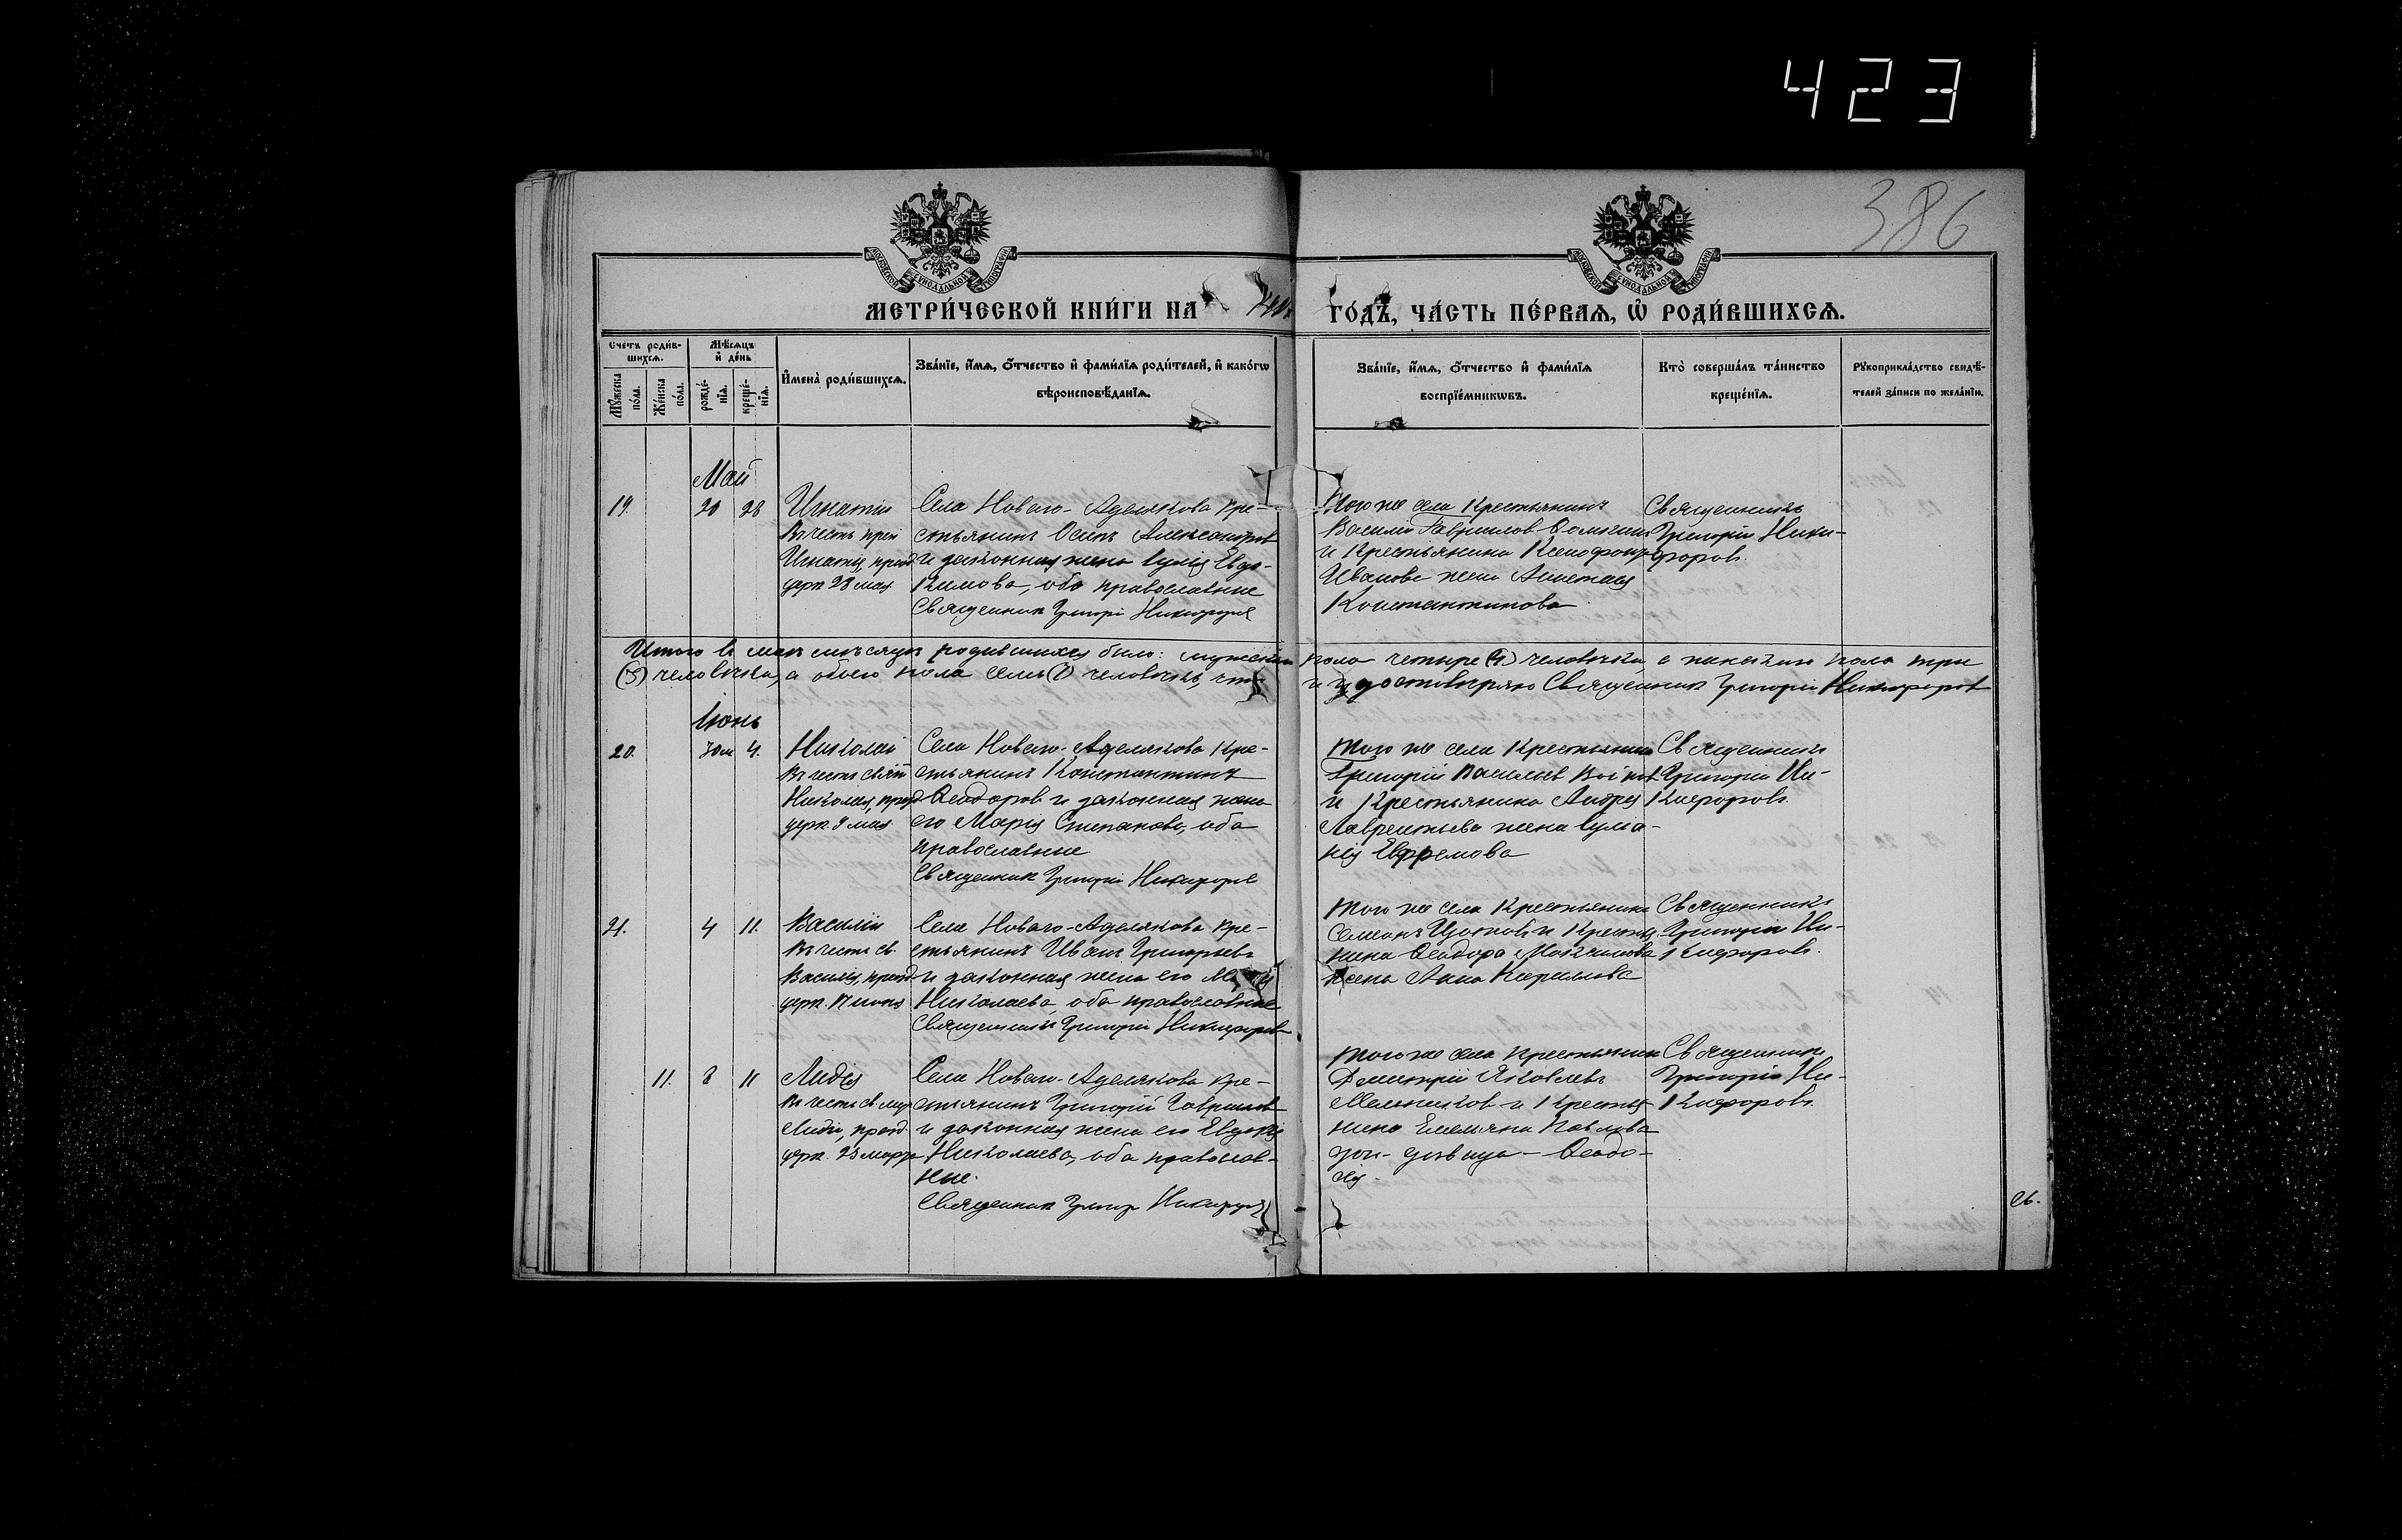 423
386
МОСКОВСКОЙ СѴНОДАЛЬНОЙ ТИПОГРАФІИ
МОСКОВСКОЙ СѴНОДАЛЬНОЙ ТИПОГРАФІИ
МЕТРИ́ЧЕСКОЙ КНИ́ГИ НА
ГО́ДЪ, ЧА́СТЬ ПЕ́РВАѦ, Ѡ҆ РОДИ́ВШИХСѦ.
Сче́тъ роди́в-
шихсѧ.
Мꙋ́жеска по́ла.
Же́нска по́ла.
Мѣ́сѧцъ
и҆ де́нь
рожде́-
нїѧ.
креще́-
нїѧ.
И҆мена̀ роди́вшихсѧ.
Зва́нїе, и҆́мѧ, ѻ҆́тчество и҆ фами́лїѧ роди́телей, и҆ како́гѡ
вѣроисповѣ́данїѧ.
Зва́нїе, и҆́мѧ, ѻ҆́тчество и҆ фами́лїѧ
воспрїе́мникѡвъ.
Кто̀ соверша́лъ та́инство
креще́нїѧ.
Рꙋкоприкла́дство свидѣ́-
телей за́писи по жела́нїю.
Май
19. 20 28
Игнатій
Въ честь преп
Игнатія, празд
церк 28 мая
Села Новаго-Аделякова кре-
стьянинъ Осипъ Александровъ
и законная жена Іулія Евдо-
кимова, оба православные
Священник Григорій Никифоровъ
Того же села крестьянинъ
Василій Гаврилов
и крестьянина Ксенофонта
Иванова жена Анастасія
Константинова
Священникъ
Григорій Ники-
форов.
Итого въ маѣ мѣсяцѣ родившихся было: мужескаго пола четыре (4) человѣка, а женскаго пола три
(3) человѣка, а обоего пола семь (7) человѣкъ, что и удостовѣряю Священникъ Григорій Никифоровъ
Іюнь
20. 30 м 4.
Николай
Въ честь святит
Николая, празд
церк. 9 мая
Села Новаго-Аделякова кре-
стьянинъ Константинъ
Ѳеодоровъ и законная жена
его Марія Степанова, оба
православные
Священник Григорій Никифоровъ
Того же села крестьянинъ
Григорій Васильевъ
и крестьянина Андрея
Лаврентьева жена Іуліа-
нія Ефремова
Священникъ
Григорій Ни-
кифоровъ.
21. 4 11.
Василій
Въ честь св.
Василія, празд
церк.
Села Новаго-Аделякова кре-
стьянинъ Иванъ Григорьевъ
и законная жена его
Николаева, оба православные
Священникъ Григорій Никифоровъ
Того же села крестьянинъ
Семенъ и крестья-
нина Ѳеодора
жена Анна Кириллова
Священникъ
Григорій Ни-
кифоровъ.
11. 8 11
Лидія
Въ честь св. муч
Лидіи, празд.
церк. 23 марта
Села Новаго-Аделякова кре-
стьянинъ Григорій Гавриловъ
и законная жена его Евдокія
Николаева, оба православ-
ные.
Священник Григор Никифоровъ
Того же села крестьянинъ
Димитрій Яковлевъ
Мельников и крестья-
нина Емельяна Павлова
доч- дѣвица - Ѳеодо-
сія.
Священникъ
Григорій Ни-
кифоровъ.